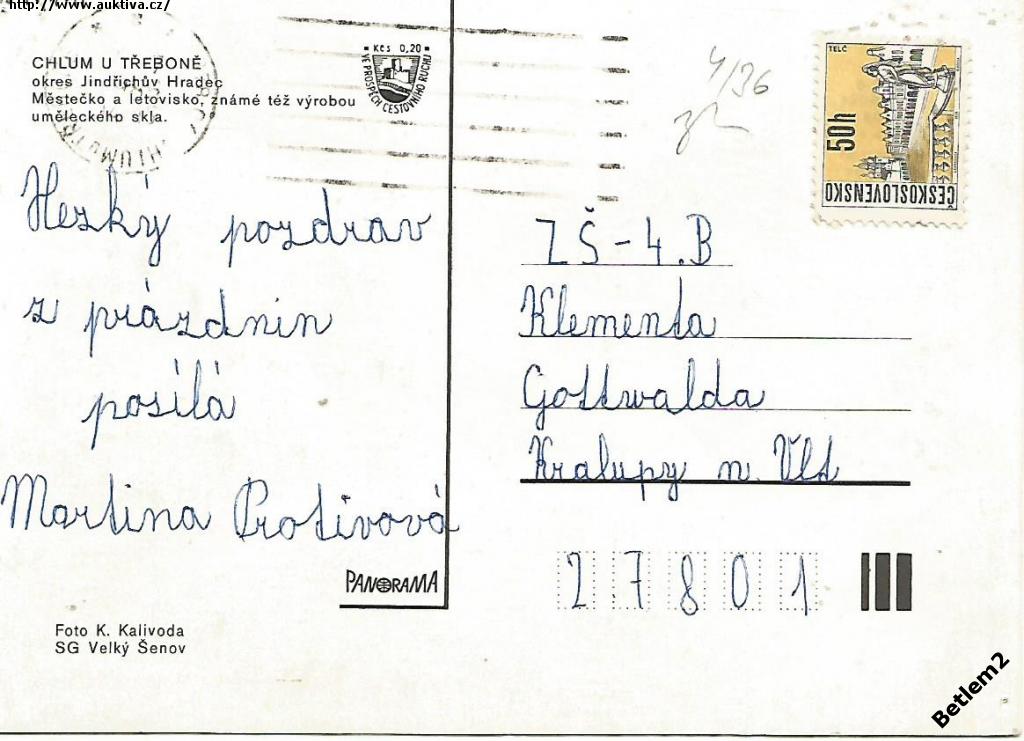 http://www.auktiva.cz/
CHLUM U TŘEBONĚ
okres Jindřichův Hradec
Městečko a letovisko, známé též výrobou
uměleckého skla.
Kčs 0,20
VE PROSPĚCH CESTOVNÍHO RUCHU
4/96
TELČ
50h
ČESKOSLOVENSKO
Hezký pozdrav
z prázdnin
posílá
Martina Protivová
ZŠ-4.B
Klementa
Gottwalda
Kralupy n. Vlt
27801
PANORAMA
Foto K. Kalivoda
SG Velký Šenov
Betlem2